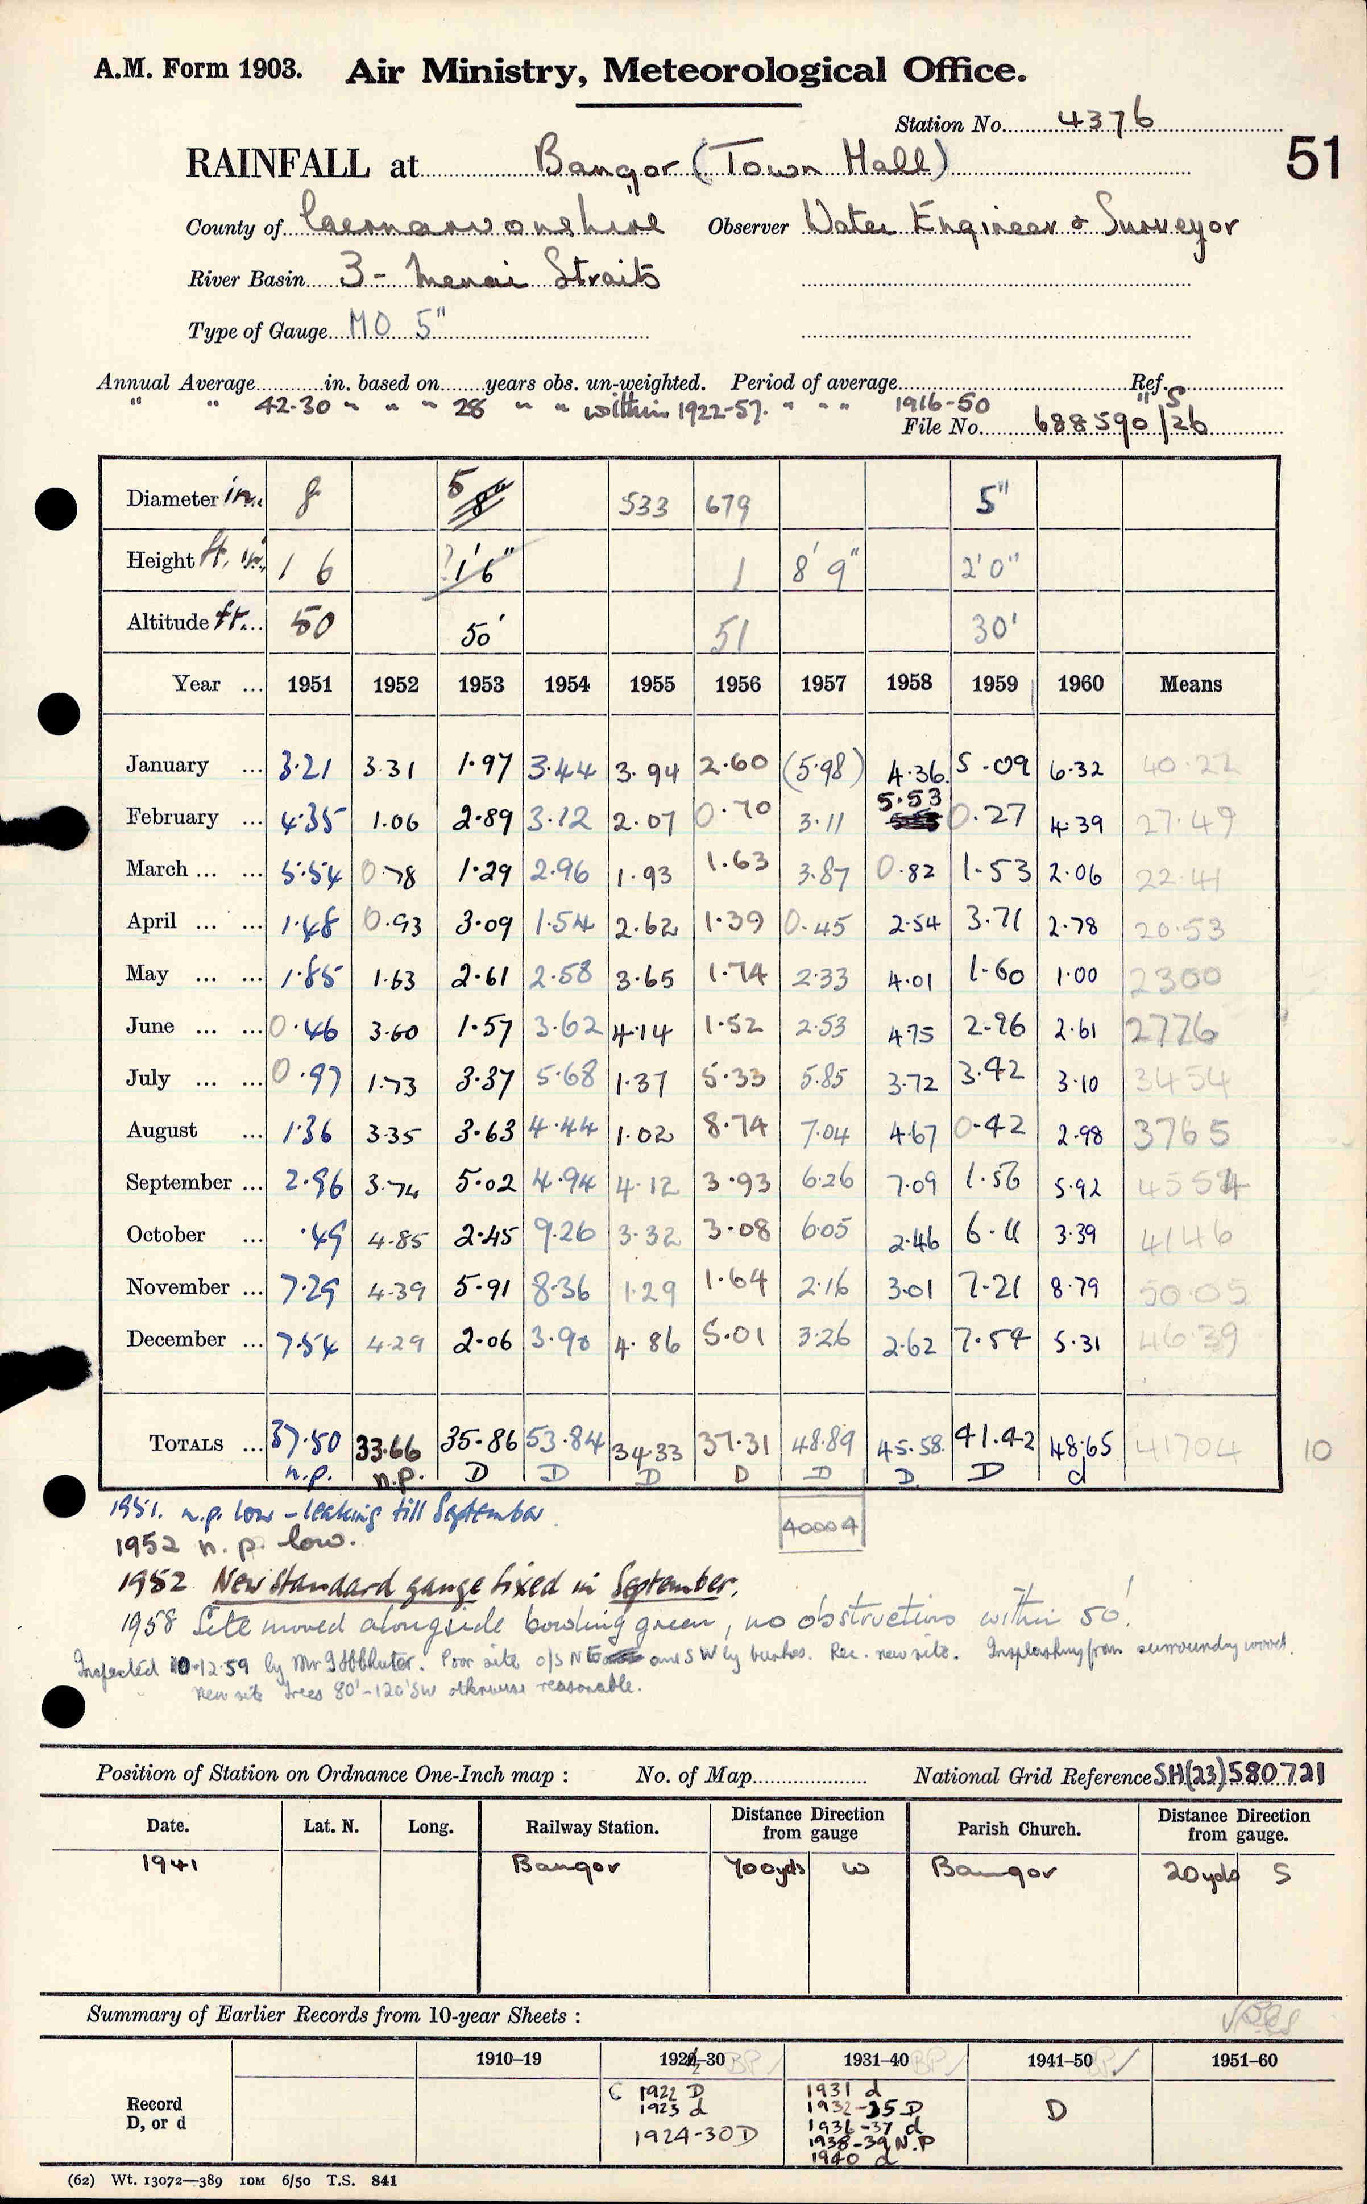 A.M. Form 1903. Air Ministry, Meteorological Office.
Station No. 4376
51
RAINFALL at Bangor (Town Hall)
County of Caernarvonshire Observer Water Engineer & Surveyor
River Basin 3 - Menai Straits
Type of Gauge MO 5"
Annual Average in. based on years obs. un-weighted. Period of average Ref.
" " 42.30 " " " 28 " " within 1922-57. " " " 1916-50 " S
File No. 688590/26
Diameter in. 8 5 8" 533 679 5"
Height ft. in. 1 6 ?1'6" 1 8'9" 2'0"
Altitude ft. 50 50' 51 30'
Year ... 1951 1952 1953 1954 1955 1956 1957 1958 1959 1960 Means
January ... 3.21 3.31 1.97 3.44 3.94 2.60 (5.98) 4.36 5.09 6.32 40.22
February ... 4.35 1.06 2.89 3.12 2.07 0.70 3.11 5.53 0.27 4.39 27.49
March ... ... 5.54 0.78 1.29 2.96 1.93 1.63 3.87 0.82 1.53 2.06 22.41
April ... ... 1.48 0.93 3.09 1.54 2.62 1.39 0.45 2.54 3.71 2.78 20.53
May ... ... 1.85 1.63 2.61 2.58 3.65 1.74 2.33 4.01 1.60 1.00 2300
June ... ... 0.46 3.60 1.57 3.62 4.14 1.52 2.53 4.75 2.96 2.61 2776
July ... ... 0.97 1.73 3.37 5.68 1.37 5.33 5.85 3.72 3.42 3.10 3454
August ... 1.36 3.35 3.63 4.44 1.02 8.74 7.04 4.67 0.42 2.98 3765
September ... 2.96 3.74 5.02 4.94 4.12 3.93 6.26 7.09 1.56 5.92 4554
October ... .49 4.85 2.45 9.26 3.32 3.08 6.05 2.46 6.11 3.39 4146
November ... 7.29 4.39 5.91 8.36 1.29 1.64 2.16 3.01 7.21 8.79 50.05
December ... 7.54 4.29 2.06 3.90 4.86 5.01 3.26 2.62 7.54 5.31 46.39
TOTALS ... 37.50 33.66 35.86 53.84 34.33 37.31 48.89 45.58 41.42 48.65 41704 10
n.p. n.p. D D D D D D D d
1951. n.p. low - leaking till September
40004
1952 n.p. low.
1952 New Standard gauge fixed in September.
1958 Site moved alongside bowling green, no obstructions within 50'.
Inspected 10.12.59 by Mr Poor site o/s NE and SW by bushes. Rec. new site. Insplashing from surrounding wood.
New site trees 80'-120' SW otherwise reasonable.
Position of Station on Ordnance One-Inch map : No. of Map National Grid Reference SH(23)580721
Date. Lat. N. Long. Railway Station. Distance Direction from gauge Parish Church. Distance Direction from gauge.
1941 Bangor 700yds W Bangor 20yds S
Summary of Earlier Records from 10-year Sheets :
1910–19 1922–30 BP 1931–40 BP 1941–50 BP 1951–60
Record D, or d
C 1922 D 1931 d D
1923 d 1932-35 D
1924-30 D 1936-37 d
1938-39 N.P
1940 d
(62) Wt. 13072—389 10M 6/50 T.S. 841